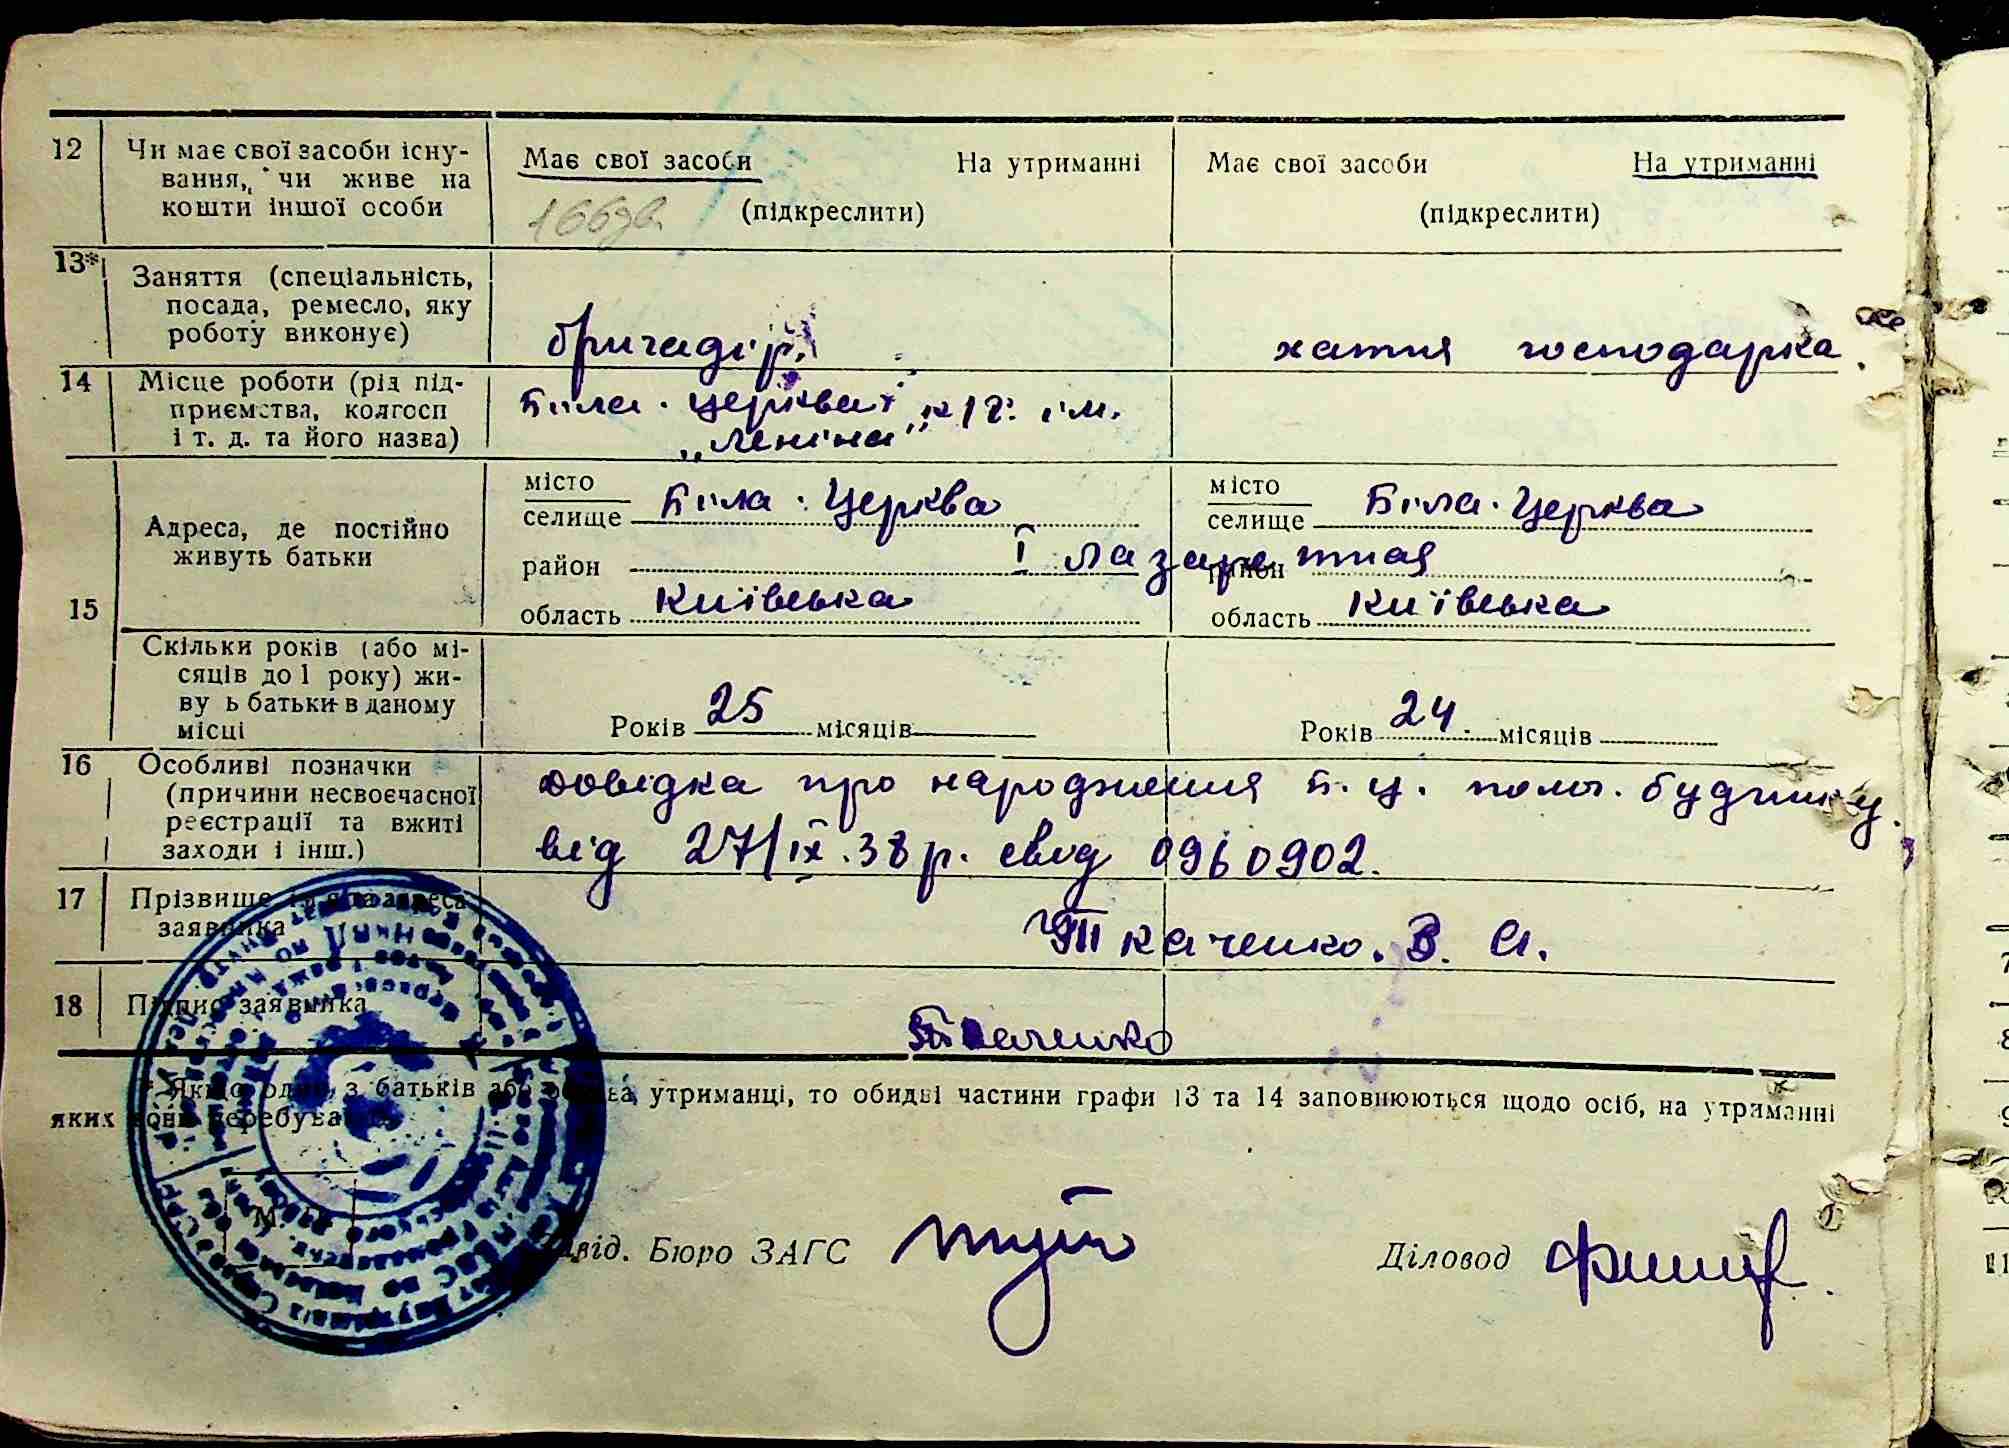 12 Чи має свої засоби існу-
вання, чи живе на
кошти іншої особи
Має свої засоби На утриманні
(підкреслити)
Має свої засоби На утриманні
(підкреслити)
13* Заняття (спеціальність,
посада, ремесло, яку
роботу виконує)
бригадір.
хатня господарка.
14 Місце роботи (рід під-
приємства, колгосп
і т. д. та його назва)
Біла. Церква к/г. ім.
„Леніна"
15 Адреса, де постійно
живуть батьки
місто
селище Біла. Церква
район
область Київська
місто
селище Біла. Церква
район
область Київська
І Лазаретная
Скільки років (або мі-
сяців до 1 року) жи-
ву ь батьки в даному
місці
Років 25 місяців
Років 24. місяців
16 Особливі позначки
(причини несвоєчасної
реєстрації та вжиті
заходи і інш.)
Довідка про народження Б. Ц. полог. будинку.
від 27/ІХ.38 р. свид 0960902.
17 Прізвище та адреса
заявника
Ткаченко. В. А.
18 Підпис заявника
Ткаченко
* Якщо один з батьків або обидва утриманці, то обидві частини графи 13 та 14 заповнюються щодо осіб, на утриманні
яких вони перебувають
М. П.
Завід. Бюро ЗАГС
Діловод